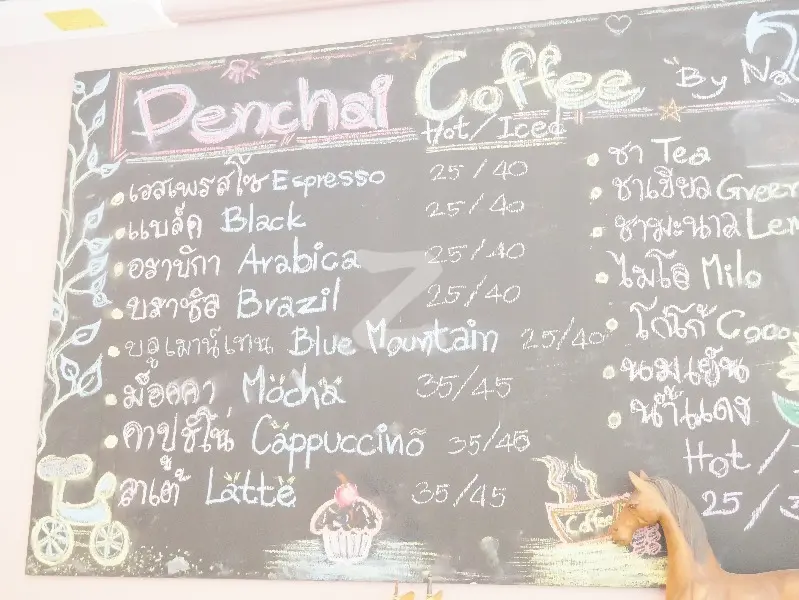 Denchai Coffee "By Na
Hot/Iced
เอสเพรสโซ Espresso 25/40
แบล็ค Black 25/40
อราบิกา Arabica 25/40
บราซิล Brazil 25/40
บลูเมาน์เทน Blue Mountain 25/40
ม็อคคา Mocha 35/45
คาปูชิโน่ Cappuccino 35/45
ลาเต้ Latte 35/45
ชา Tea
ชาเขียว Green
ชามะนาว Lem
ไมโล Milo
โกโก้ Coco
นมเย็น
น้ำแดง
Hot /
25/3
Coffee